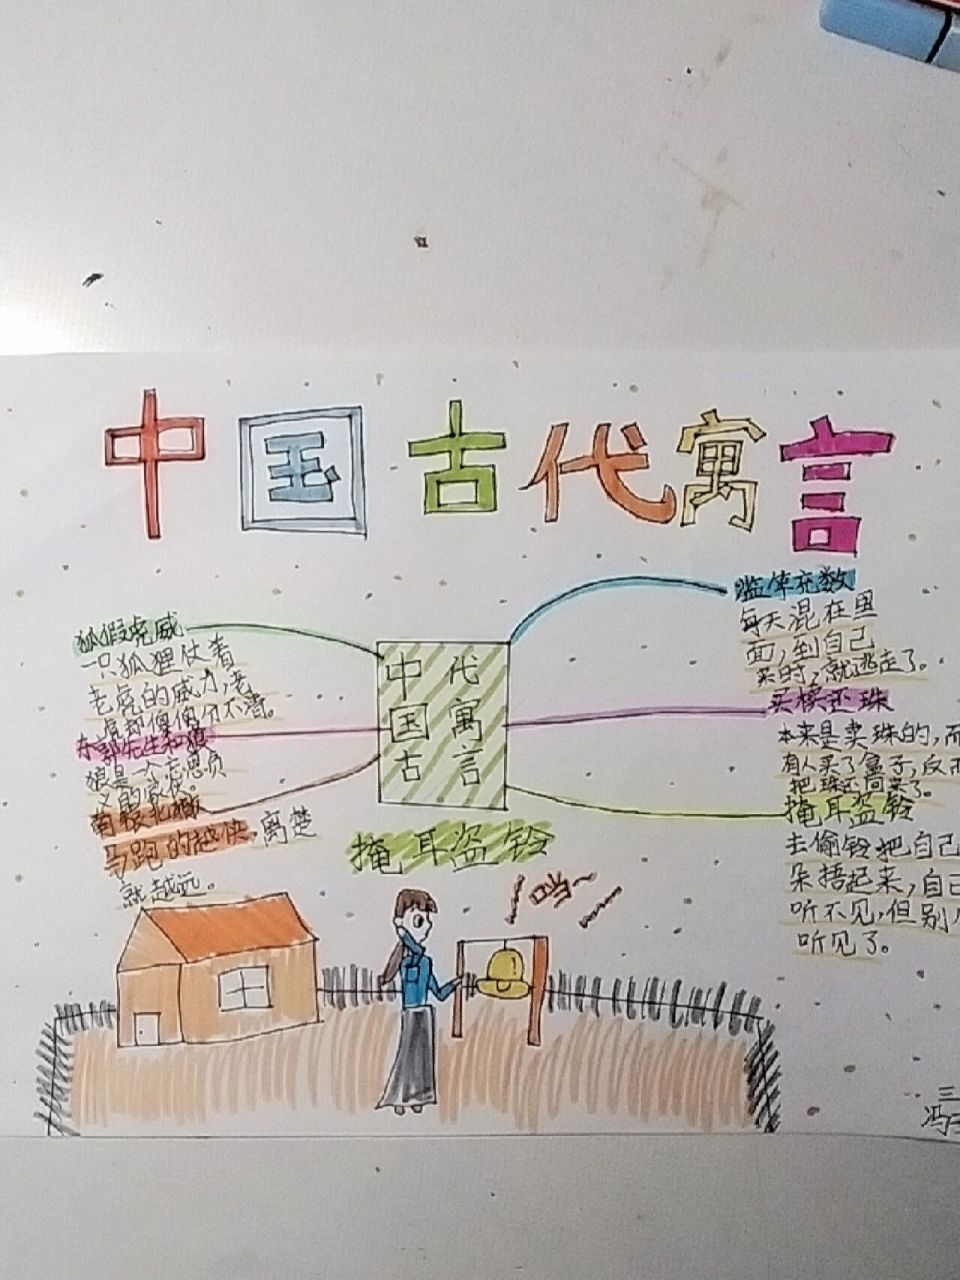 中国古代寓言
狐假虎威
一只狐狸仗着
老虎的威力,老
虎都傻傻分不清。
东郭先生和狼
狼是一个忘恩负
义的家伙。
南辕北辙
马跑的越快,离楚
就越远。
中国古
代寓言
滥竽充数
每天混在里
面,到自己
来时,就逃走了。
买椟还珠
本来是卖珠的,而
有人买了盒子,反而
把珠还回来了。
掩耳盗铃
去偷铃把自己
朵捂起来,自己
听不见,但别
听见了。
掩耳盗铃
当~
三
冯